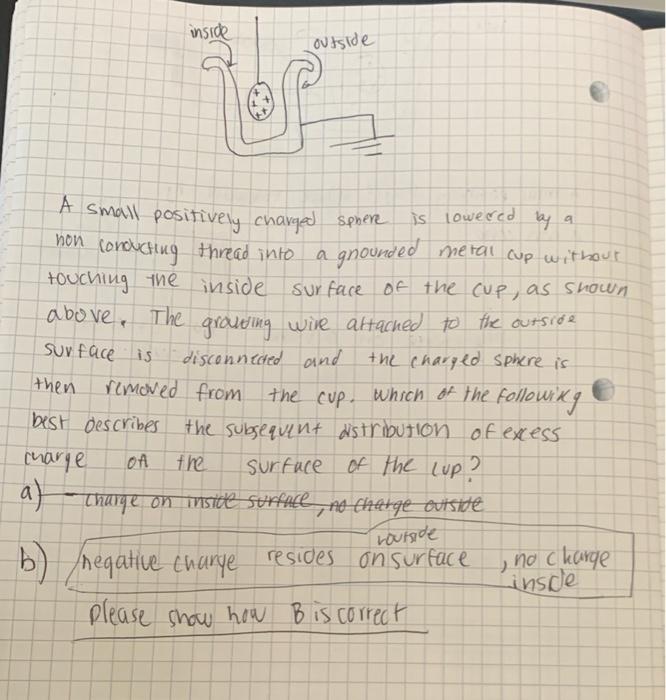 inside
outside
A small positively charged sphere is lowered by a
non conducting thread into a grounded metal cup without
touching the inside surface of the cup, as shown
above. The grouding wire attached to the outside
surface is disconnected and the charged sphere is
then removed from the cup. Which of the following
best describes the subsequent distribution of excess
charge on the surface of the cup?
a) - charge on inside surface, no charge outside
outside
b) negative charge resides on surface , no charge
inside
please show how B is correct